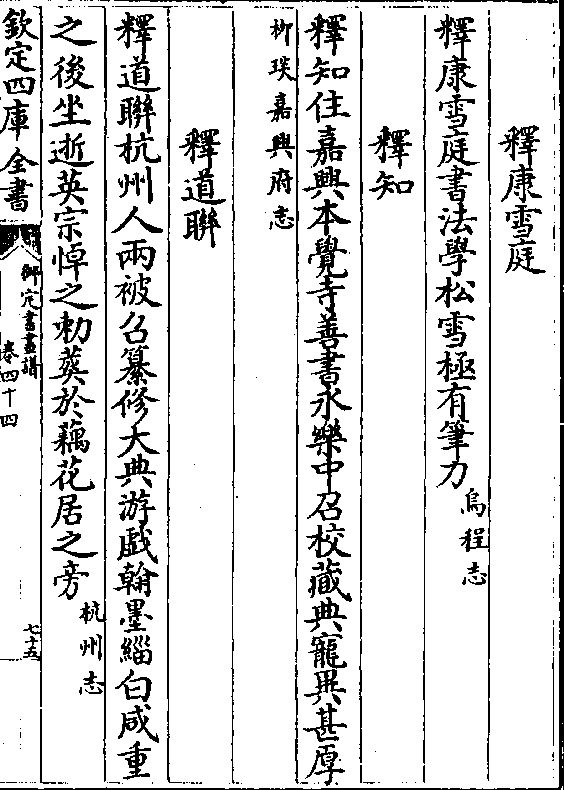 釋康雪庭
釋康雪庭書法學松雪極有筆力烏程志
釋知
釋知住嘉興本覺寺善書永樂中召校藏典寵異甚厚
柳琰嘉興府志
釋道聯
釋道聯杭州人兩被召纂修大典游戲翰墨緇白咸重
之後坐逝英宗悼之勅葬於藕花居之旁杭州志
欽定四庫全書
御定書畫譜
卷四十四
七十五